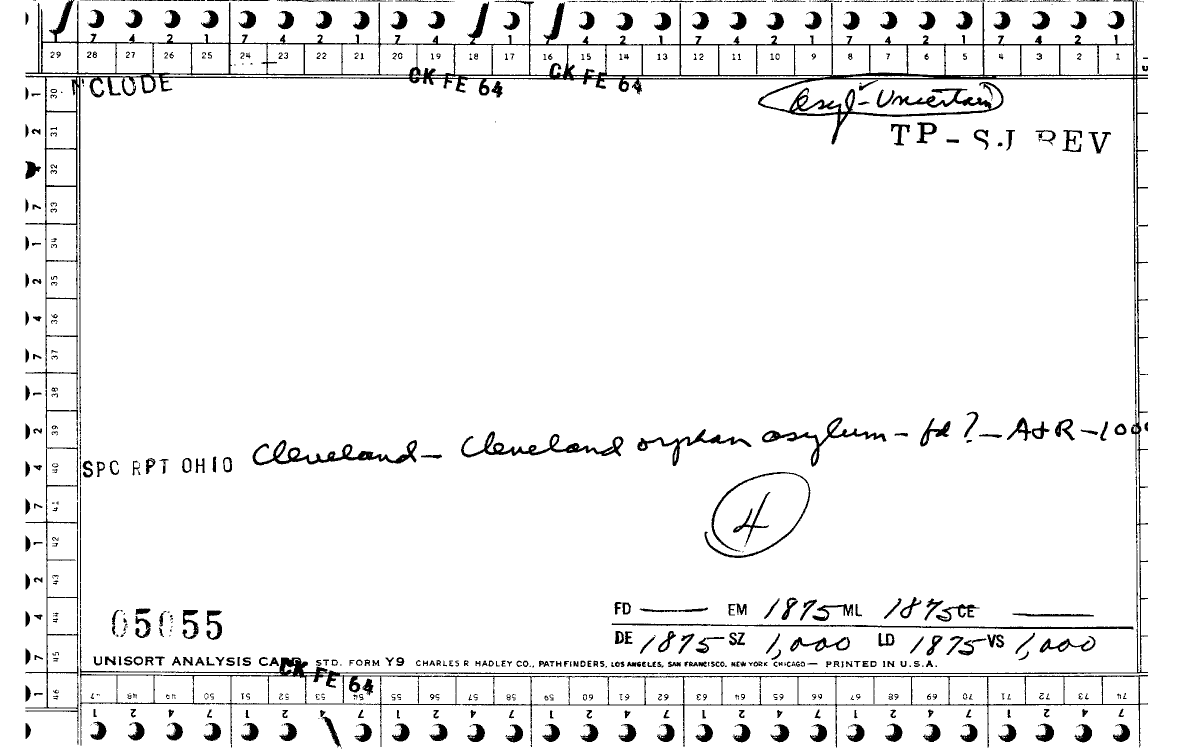 7 4 2 1 7 4 2 1 7 4 2 1 7 4 2 1 7 4 2 1 7 4 2 1
29 28 27 26 25 24 23 22 21 20 19 18 17 16 15 14 13 12 11 10 9 8 7 6 5 4 3 2 1
CLODE CK FE 64 CK FE 64
Asyl-Uncertain
TP-SJ REV
30 31 32 33 34 35 36 37 38 39 40 41 42 43 44 45 46
SPC RPT OHIO Cleveland - Cleveland orphan asylum - fd ? - A&R - 1000
4
05055
FD — EM 1875 ML 1875 CE —
DE 1875 SZ 1,000 LD 1875 VS 1,000
UNISORT ANALYSIS CARD STD. FORM Y9 CHARLES R HADLEY CO., PATHFINDERS, LOS ANGELES, SAN FRANCISCO, NEW YORK CHICAGO — PRINTED IN U.S.A.
CK FE 64
47 48 49 50 51 52 53 54 55 56 57 58 59 60 61 62 63 64 65 66 67 68 69 70 71 72 73 74
1 2 4 7 1 2 4 7 1 2 4 7 1 2 4 7 1 2 4 7 1 2 4 7 1 2 4 7